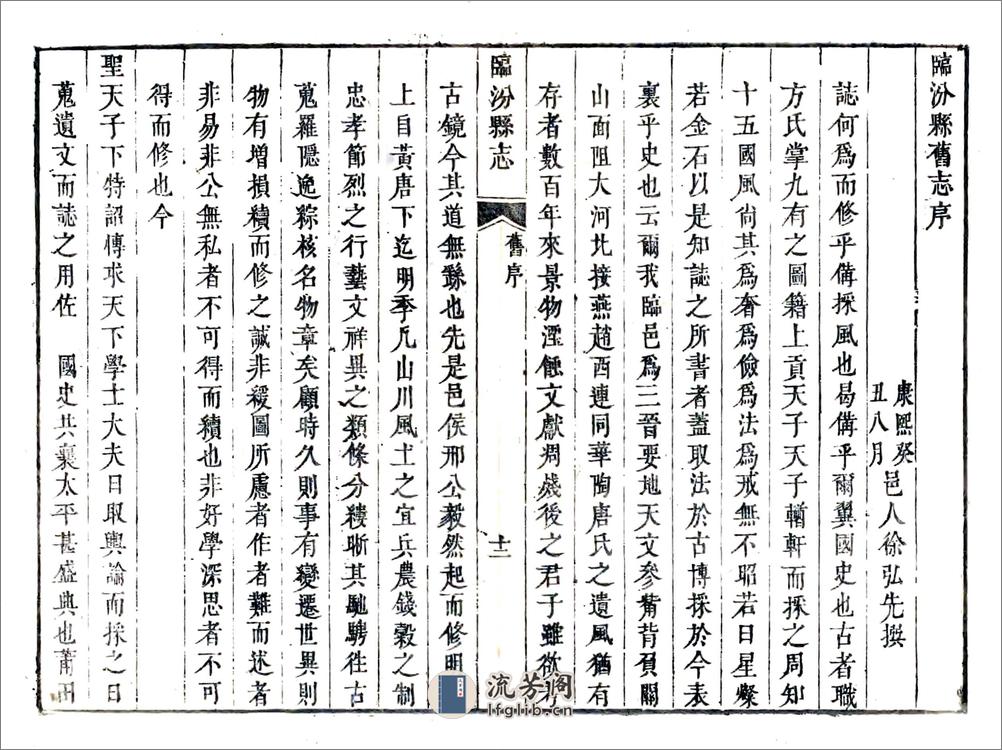 臨汾縣舊志序
康熙癸丑八月 邑人徐弘先撰
誌何為而修乎俻採風也曷俻乎爾翼國史也古者職
方氏掌九有之圖籍上貢天子天子輶軒而採之周知
十五國風尚其為奢為儉為法為戒無不昭若日星燦
若金石以是知誌之所書者蓋取法於古博採於今表
裏乎史也云爾我臨邑為三晉要地天文參觜背負關
山面阻大河北接燕趙西連同華陶唐氏之遺風猶有
存者數百年來景物湮蝕文獻凋殘後之君子雖欲考
臨汾縣志
舊序
十二
古鏡今其道無繇也先是邑侯邢公毅然起而修明
上自黃唐下迄明季凡山川風土之宜兵農錢穀之制
忠孝節烈之行藝文祥異之類條分縷晰其馳騁徃古
蒐羅隱逸綜核名物章矣顧時久則事有變遷世異則
物有增損續而修之誠非緩圖所慮者作者難而述者
非易非公無私者不可得而續也非好學深思者不可
得而修也今
聖天子下特詔傳求天下學士大夫日取輿論而採之日
蒐遺文而誌之用佐 國史共襄太平甚盛典也莆田
流芳阁
lfglib.cn